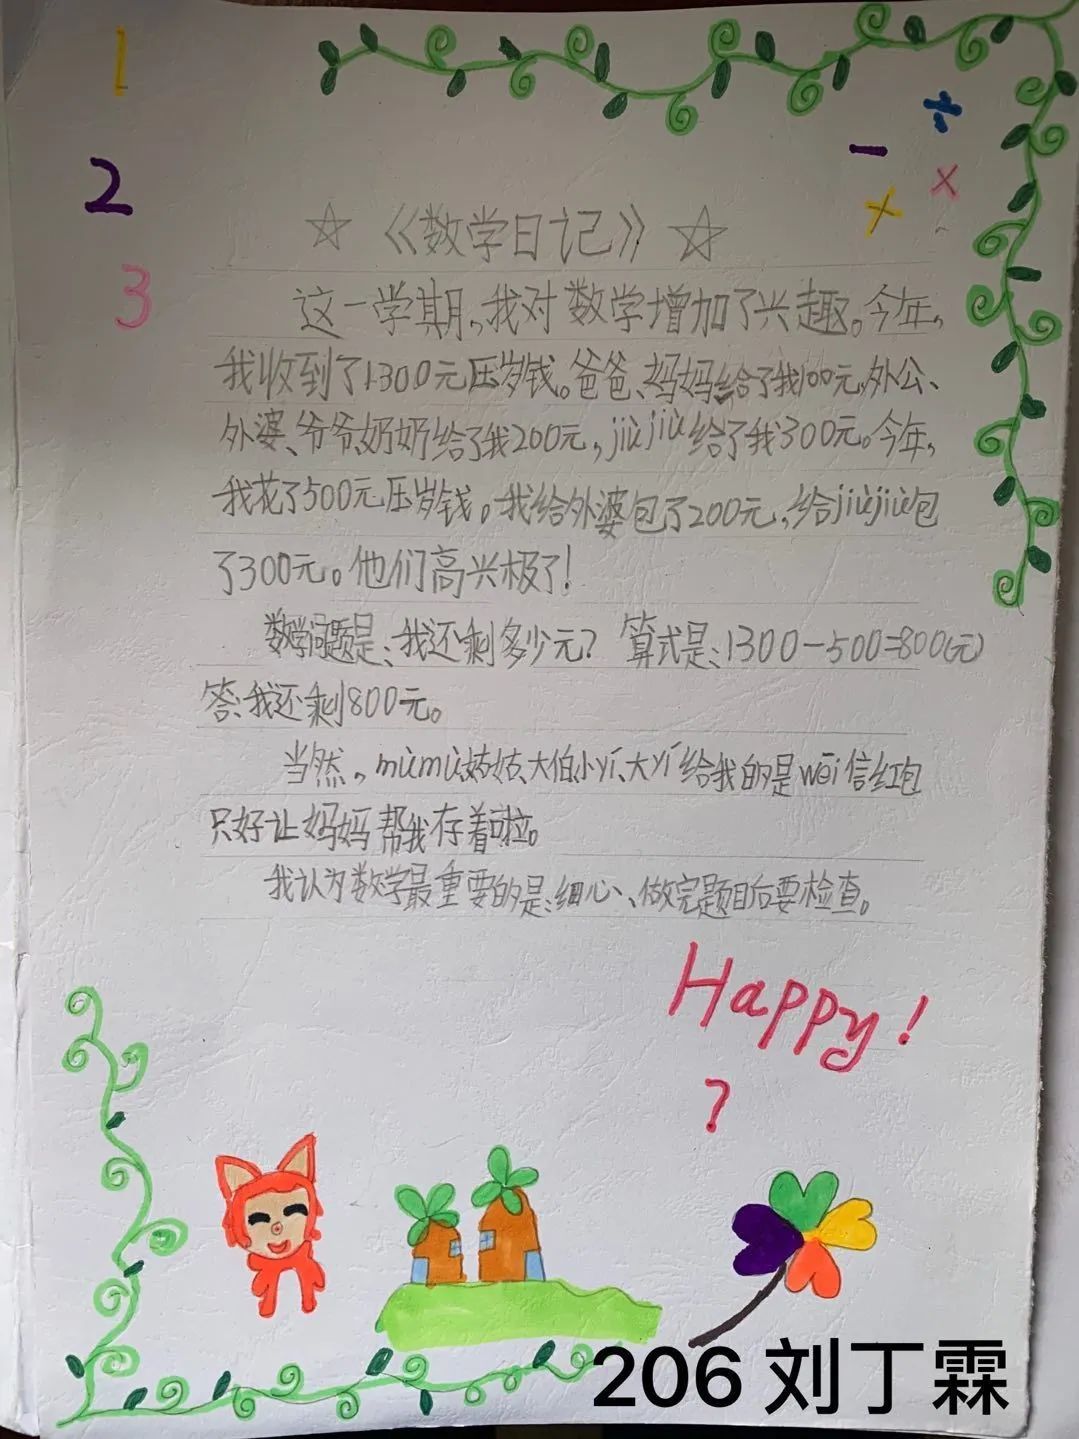 1
2
3
÷
-
×
+
☆《数学日记》☆
这一学期,我对数学增加了兴趣。今年,
我收到了1300元压岁钱。爸爸、妈妈给了我100元,外公、
外婆、爷爷、奶奶给了我200元,jiùjiù给了我300元。今年,
我花了500元压岁钱。我给外婆包了200元,给jiùjiù包
了300元。他们高兴极了!
数学问题是:我还剩多少元? 算式是:1300-500=800(元)
答:我还剩800元。
当然,mùmù、姑姑、大伯、小yí、大yí给我的是wēi信红包
只好让妈妈帮我存着啦。
我认为数学最重要的是:细心、做完题目后要检查。
Happy!
?
206 刘丁霖